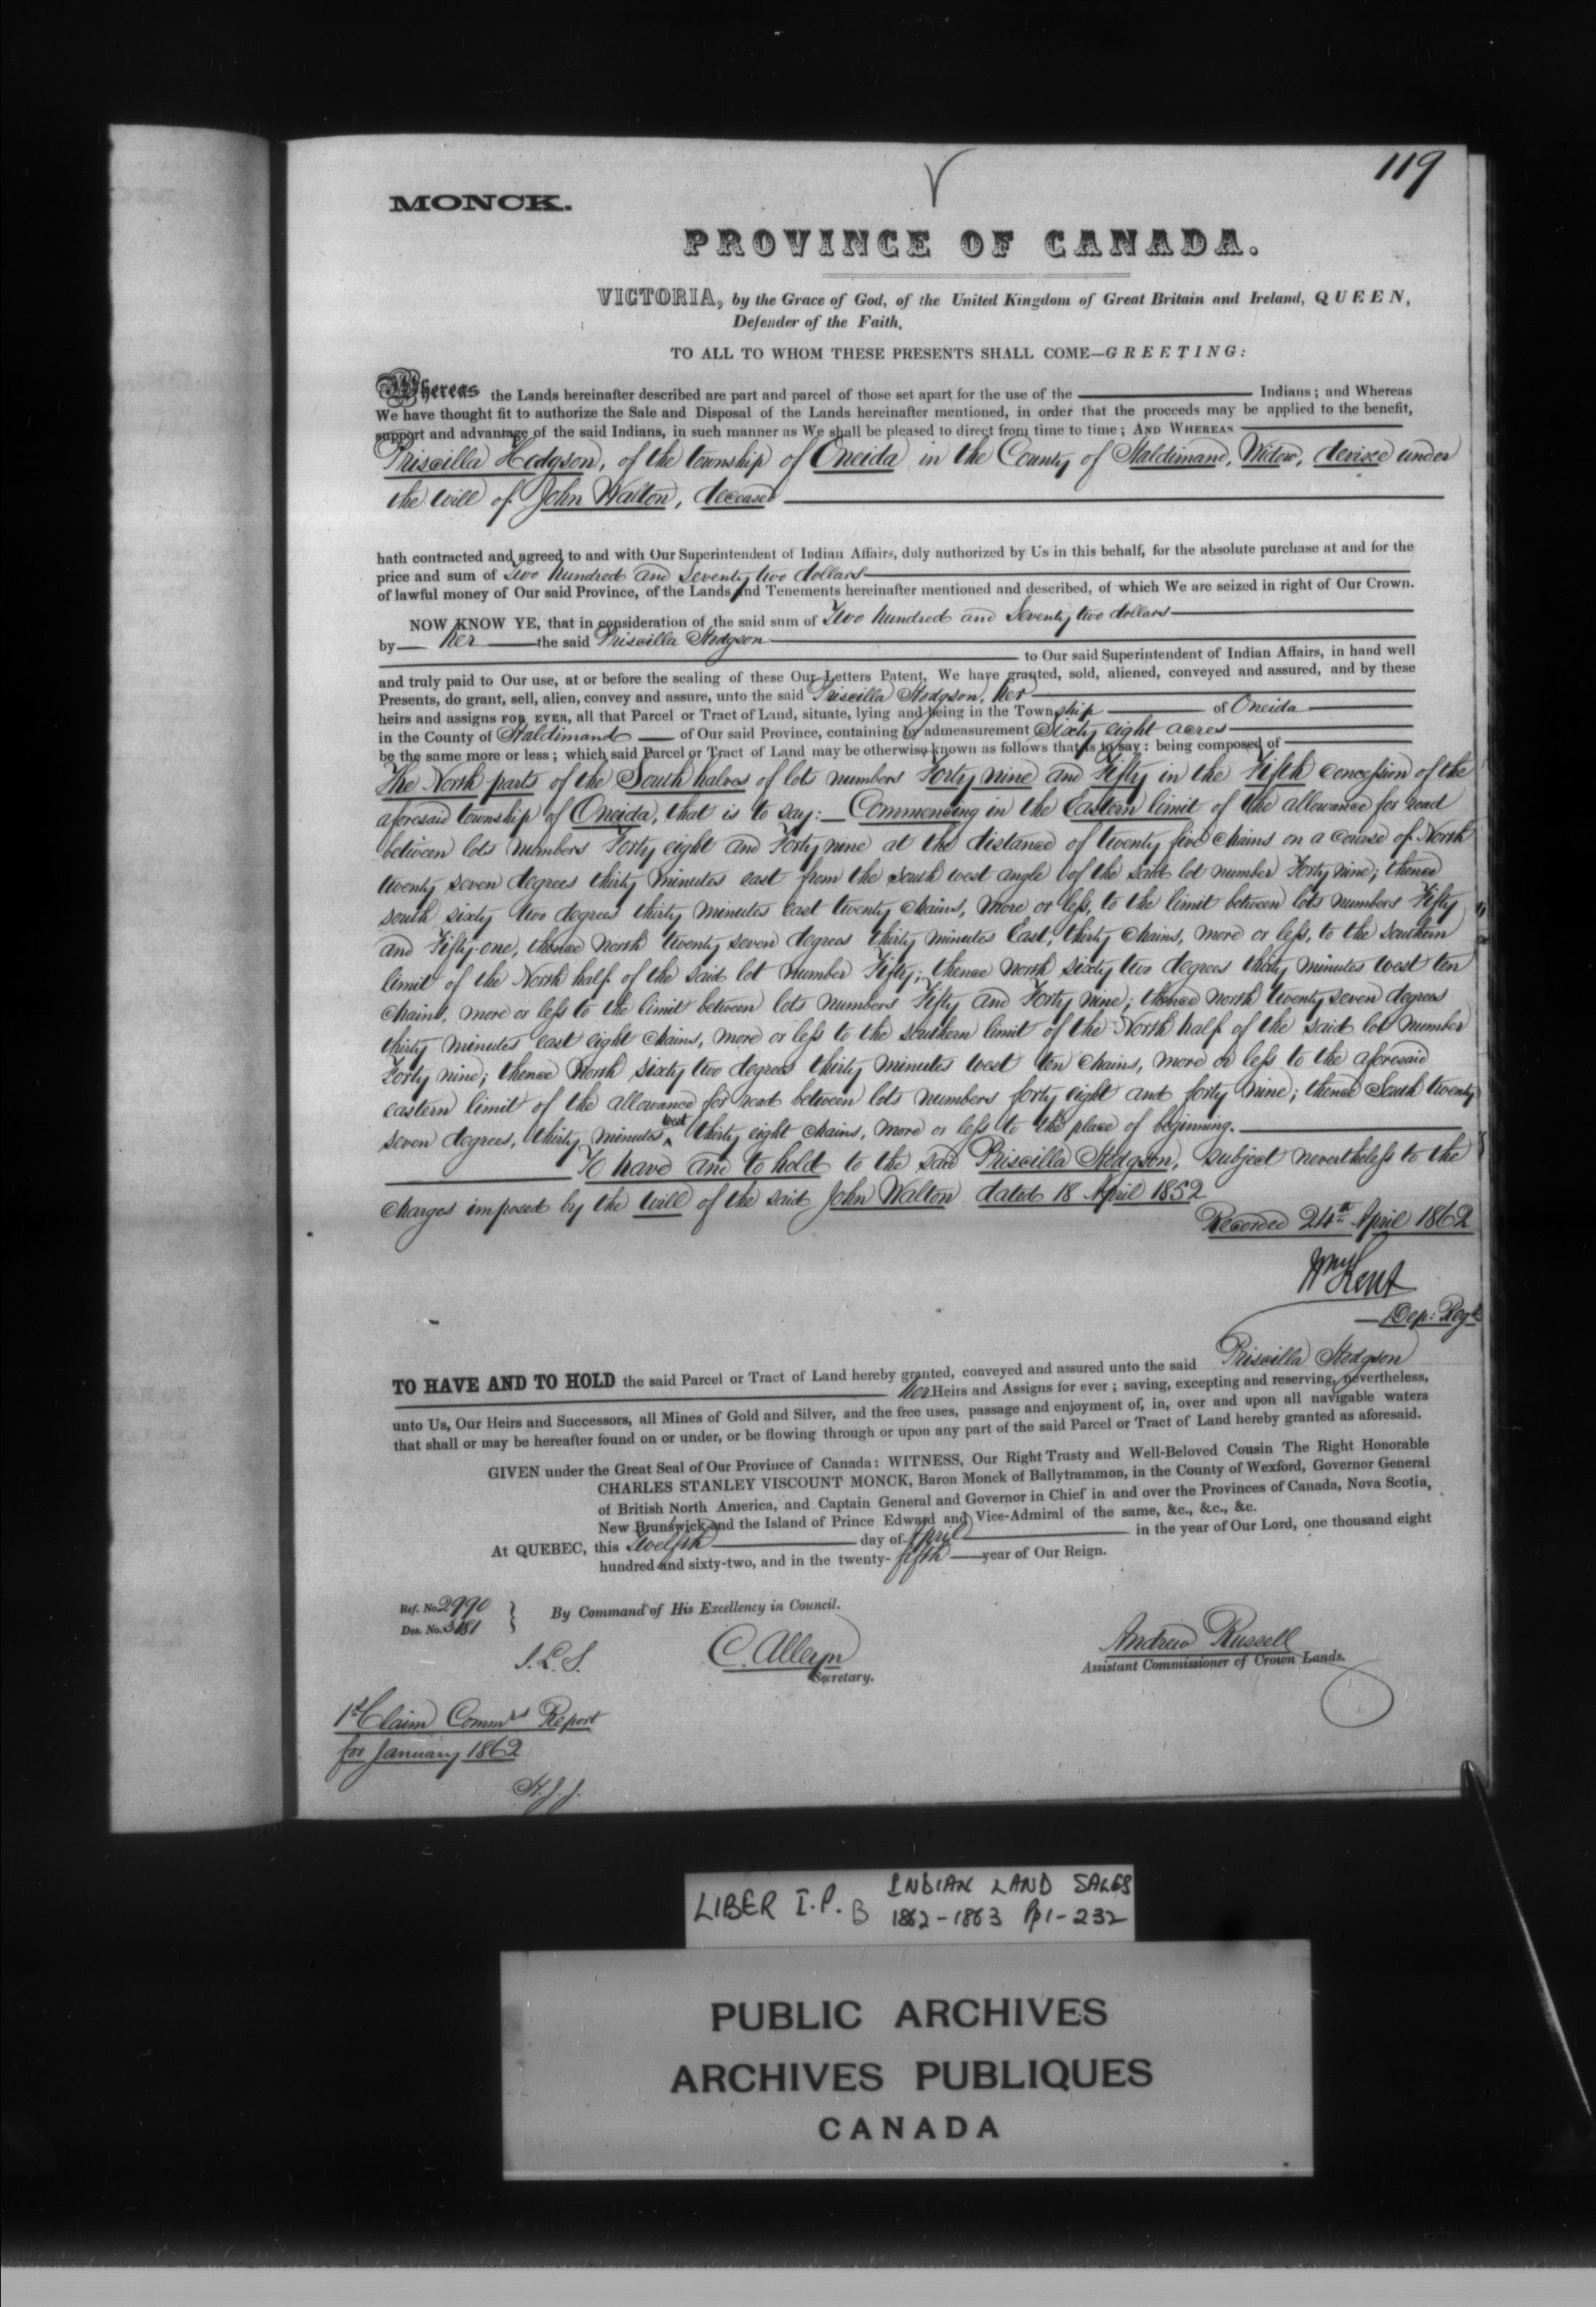 119
MONCK.
PROVINCE OF CANADA.
VICTORIA, by the Grace of God, of the United Kingdom of Great Britain and Ireland, QUEEN,
Defender of the Faith.
TO ALL TO WHOM THESE PRESENTS SHALL COME—GREETING:
Whereas the Lands hereinafter described are part and parcel of those set apart for the use of the Indians; and Whereas
We have thought fit to authorize the Sale and Disposal of the Lands hereinafter mentioned, in order that the proceeds may be applied to the benefit,
support and advantage of the said Indians, in such manner as We shall be pleased to direct from time to time; AND WHEREAS
Priscilla Hodgson, of the township of Oneida in the County of Haldimand, Widow, devisee under
the will of John Walton, deceased
hath contracted and agreed to and with Our Superintendent of Indian Affairs, duly authorized by Us in this behalf, for the absolute purchase at and for the
price and sum of Two hundred and seventy two dollars
of lawful money of Our said Province, of the Lands and Tenements hereinafter mentioned and described, of which We are seized in right of Our Crown.
NOW KNOW YE, that in consideration of the said sum of Two hundred and Seventy two dollars
by her the said Priscilla Hodgson
to Our said Superintendent of Indian Affairs, in hand well
and truly paid to Our use, at or before the sealing of these Our Letters Patent, We have granted, sold, aliened, conveyed and assured, and by these
Presents, do grant, sell, alien, convey and assure, unto the said Priscilla Hodgson, her
heirs and assigns FOR EVER, all that Parcel or Tract of Land, situate, lying and being in the Township of Oneida
in the County of Haldimand of Our said Province, containing by admeasurement Sixty eight acres
be the same more or less; which said Parcel or Tract of Land may be otherwise known as follows that is to say: being composed of
The North parts of the South halves of lots numbers Forty nine and Fifty in the Fifth concession of the
aforesaid township of Oneida, that is to say:— Commencing in the Eastern limit of the allowance for road
between lots numbers Forty eight and Forty nine at the distance of twenty five chains on a course of North
twenty seven degrees thirty minutes east from the south west angle of the said lot number Forty nine; thence
south sixty two degrees thirty minutes east twenty chains, more or less, to the limit between lots numbers Fifty
and Fifty-one, thence north twenty seven degrees thirty minutes East, thirty chains, more or less, to the southern
limit of the North half of the said lot number Fifty; thence north sixty two degrees thirty minutes west ten
chains, more or less to the limit between lots numbers Fifty and Forty nine; thence north twenty seven degrees
thirty minutes east eight chains, more or less to the southern limit of the North half of the said lot number
Forty nine; thence North sixty two degrees thirty minutes west ten chains, more or less to the aforesaid
eastern limit of the allowance for road between lots numbers forty eight and forty nine; thence South twenty
seven degrees, thirty minutes west thirty eight chains, more or less to the place of beginning.
To have and to hold to the said Priscilla Hodgson, subject nevertheless to the
charges imposed by the will of the said John Walton dated 18 April 1852
Recorded 24th April 1862
Wm Kent
Dep: Regr
TO HAVE AND TO HOLD the said Parcel or Tract of Land hereby granted, conveyed and assured unto the said Priscilla Hodgson
her Heirs and Assigns for ever; saving, excepting and reserving, nevertheless,
unto Us, Our Heirs and Successors, all Mines of Gold and Silver, and the free uses, passage and enjoyment of, in, over and upon all navigable waters
that shall or may be hereafter found on or under, or be flowing through or upon any part of the said Parcel or Tract of Land hereby granted as aforesaid.
GIVEN under the Great Seal of Our Province of Canada: WITNESS, Our Right Trusty and Well-Beloved Cousin The Right Honorable
CHARLES STANLEY VISCOUNT MONCK, Baron Monck of Ballytrammon, in the County of Wexford, Governor General
of British North America, and Captain General and Governor in Chief in and over the Provinces of Canada, Nova Scotia,
New Brunswick and the Island of Prince Edward and Vice-Admiral of the same, &c., &c., &c.
At QUEBEC, this Twelfth day of April in the year of Our Lord, one thousand eight
hundred and sixty-two, and in the twenty-fifth year of Our Reign.
Ref. No. 2990
Des. No. 3181
By Command of His Excellency in Council.
C. Alleyn
Secretary.
Andrew Russell
Assistant Commissioner of Crown Lands.
1st Claim Commrs Report
for January 1862
H.J.J.
LIBER I.P. B INDIAN LAND SALES
1862-1863 Pp 1-232
PUBLIC ARCHIVES
ARCHIVES PUBLIQUES
CANADA